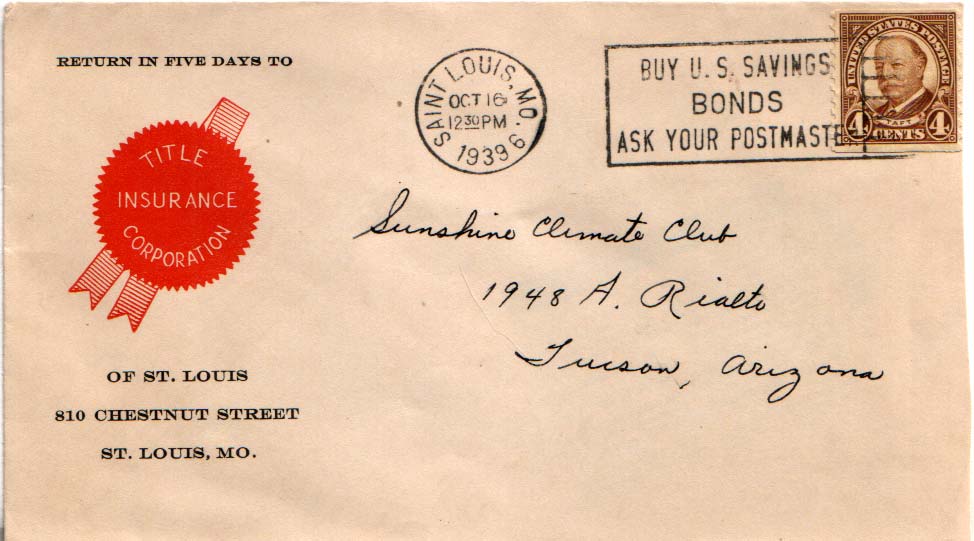 RETURN IN FIVE DAYS TO
TITLE
INSURANCE
CORPORATION
OF ST. LOUIS
810 CHESTNUT STREET
ST. LOUIS, MO.
SAINT LOUIS, MO.
OCT 16
12 30 PM
1939
6
BUY U. S. SAVINGS
BONDS
ASK YOUR POSTMASTE
UNITED STATES POSTAGE
TAFT
4 CENTS 4
Sunshine Climate Club
1948 A. Rialto
Tucson, Arizona